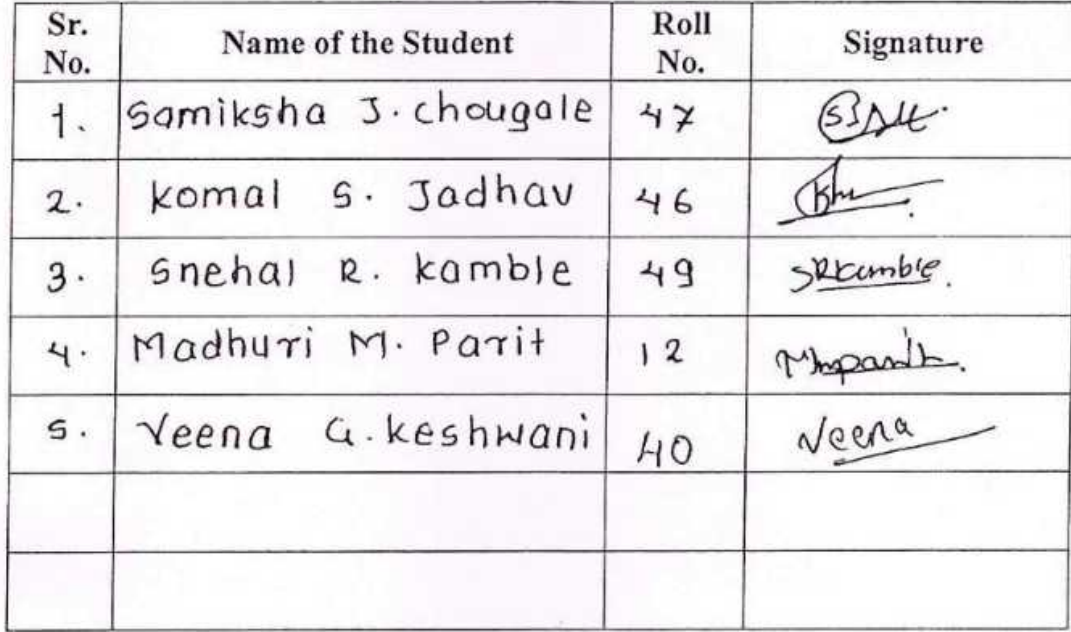 Sr. No. Name of the Student Roll No. Signature
1. Samiksha J. chougale 47
2. komal S. Jadhav 46
3. Snehal R. kamble 49 SRKamble.
4. Madhuri M. Parit 12
5. Veena G. keshwani 40 Veena